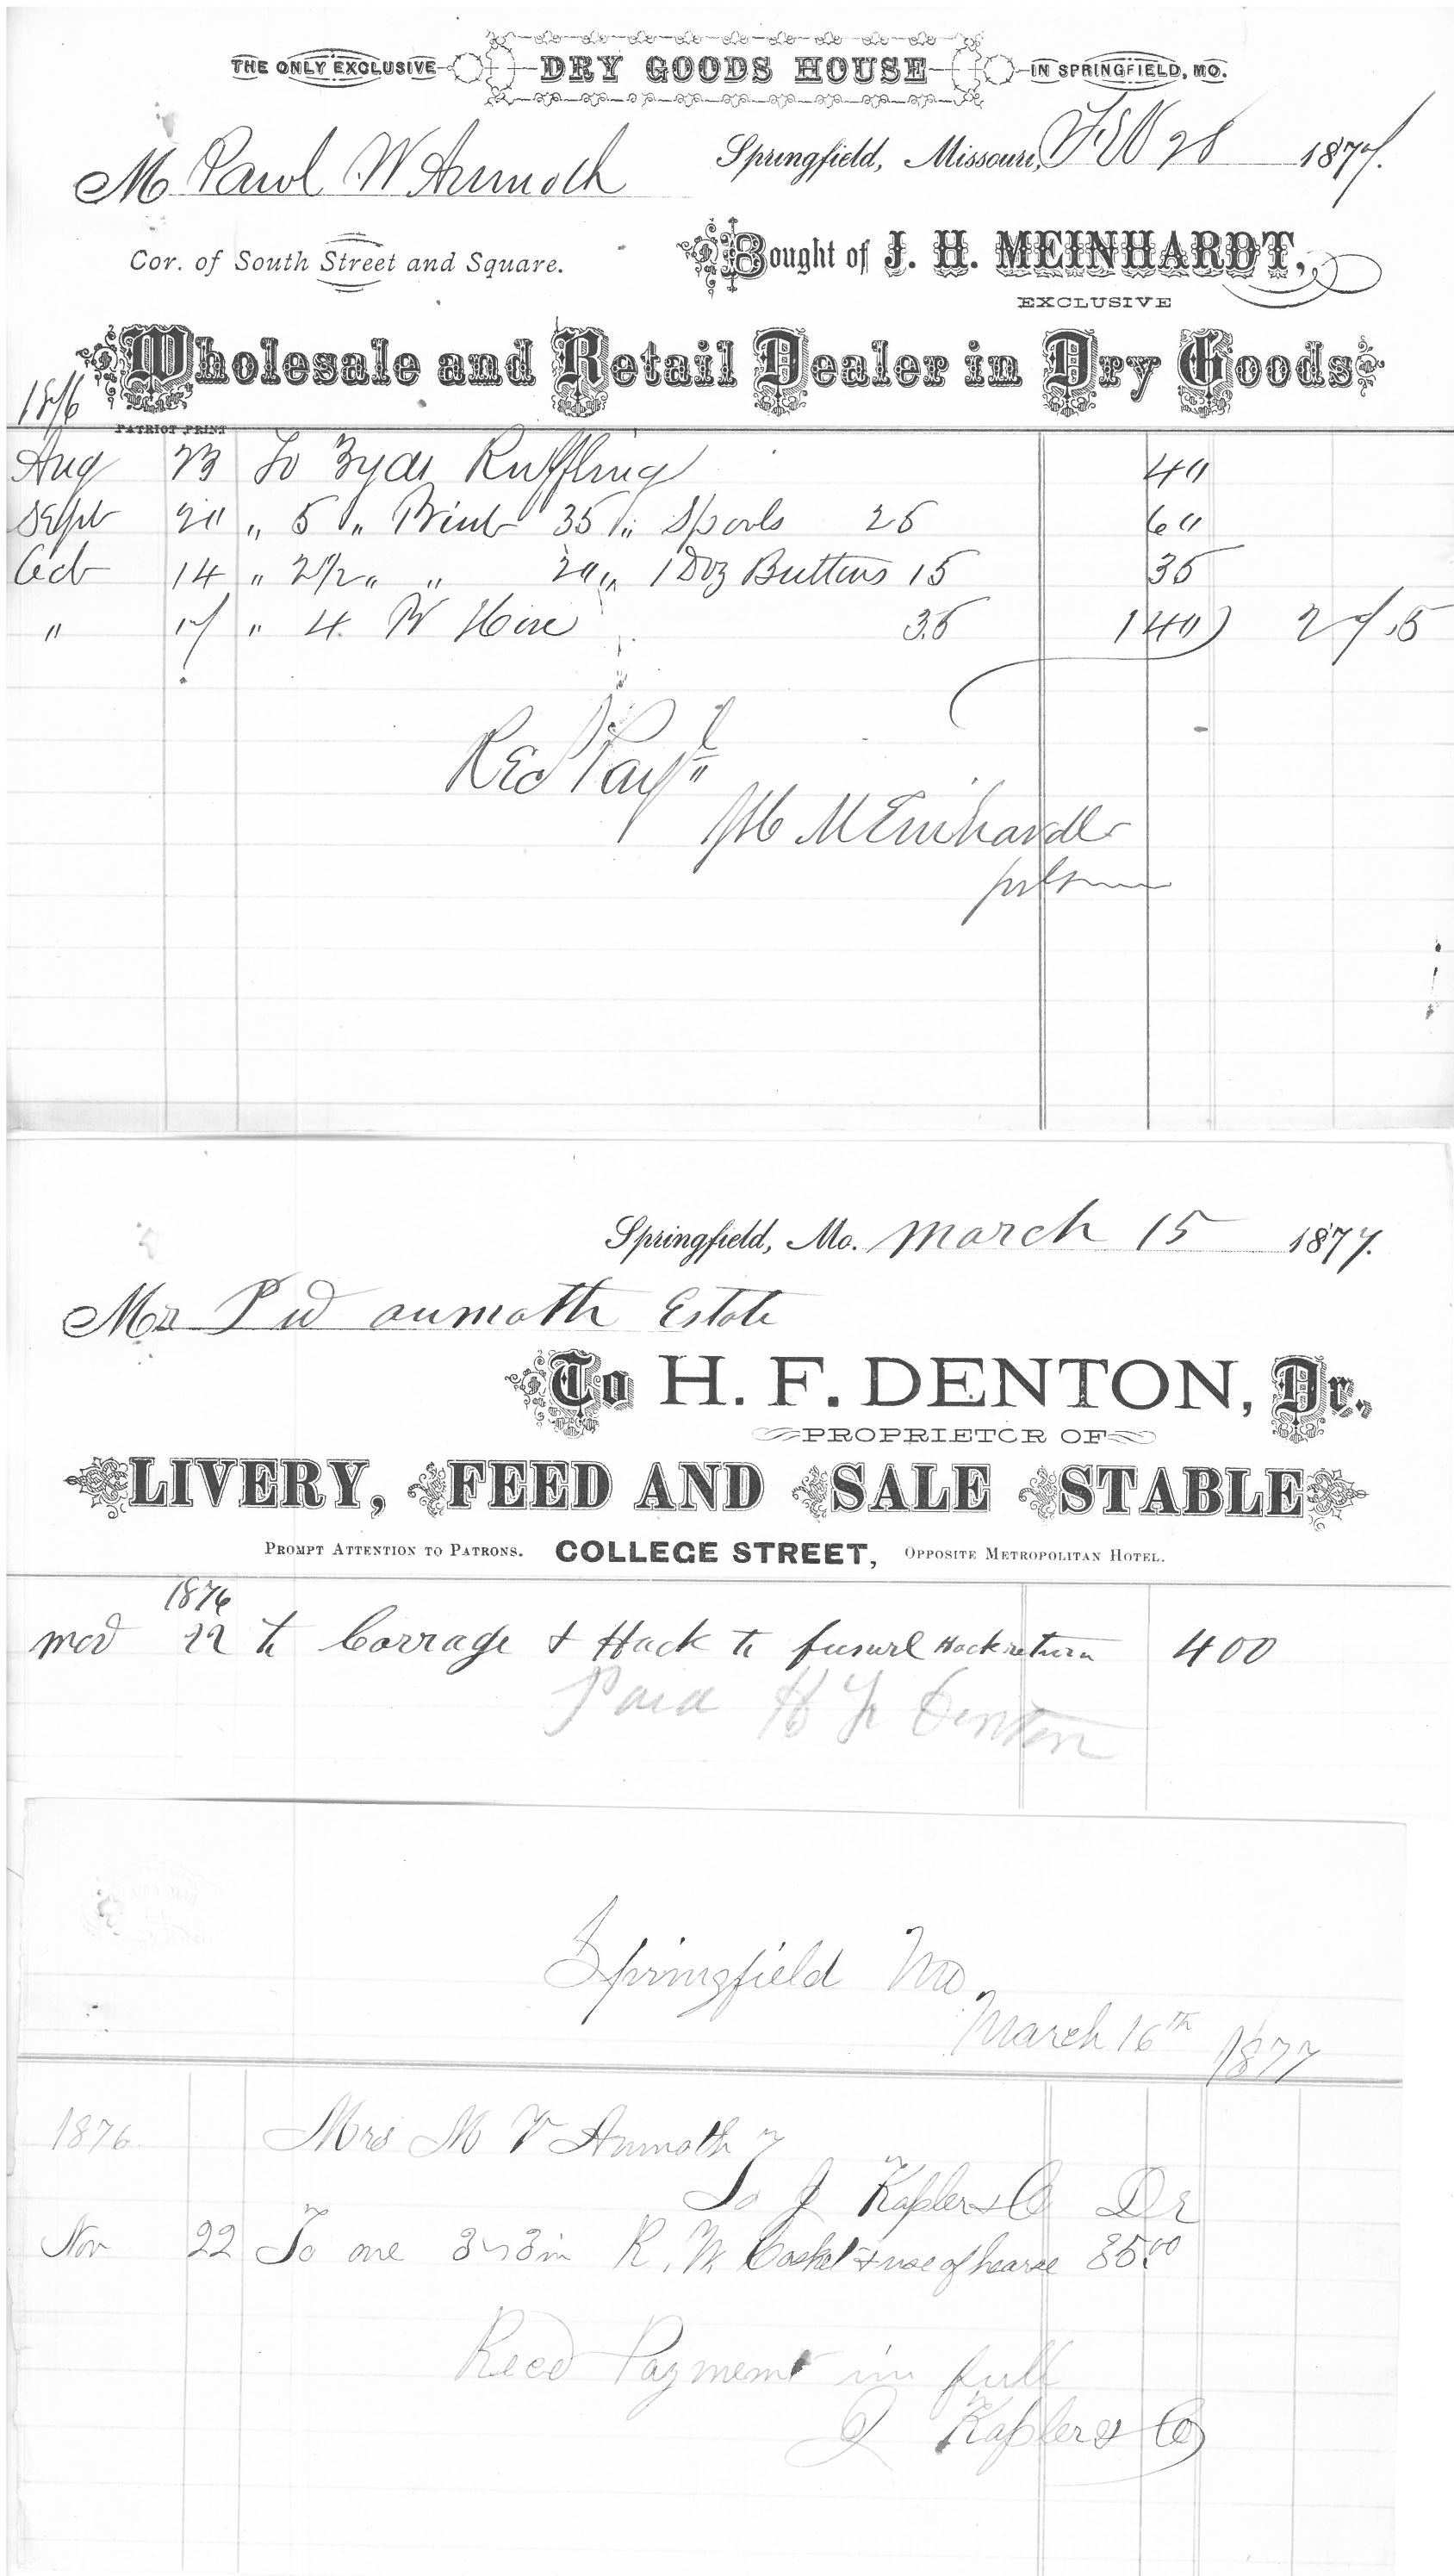 THE ONLY EXCLUSIVE DRY GOODS HOUSE IN SPRINGFIELD, MO.
Springfield, Missouri, Feb 28 1877.
M Paul W Anmoth
Cor. of South Street and Square.
Bought of J. H. MEINHARDT,
EXCLUSIVE
Wholesale and Retail Dealer in Dry Goods
1876
PATRIOT PRINT
Aug 23 To 3 yds Ruffling 40
Sept 20 " 5 " Print 35 " Spools 25 60
Oct 14 " 2 1/2 " " 20 " 1 Doz Buttons 15 35
" 17 " 4 Pr Hose 35 140 2 75
Rec Paymt
JH Meinhardt
Springfield, Mo. March 15 1877.
Mr P W anmoth Estate
To H. F. DENTON, Dr.,
PROPRIETOR OF
LIVERY, FEED AND SALE STABLE
PROMPT ATTENTION TO PATRONS. COLLEGE STREET, OPPOSITE METROPOLITAN HOTEL.
1876
22 to Carrage & Hack to funurl Hack return 400
Paid H F Denton
Springfield Mo
March 16th 1877
1876 Mrs M V Anmoth
To J Kapler & Co Dr
Nov 22 To one R. W. Casket & use of hearse 35.00
Recd Payment in full
J Kapler & Co